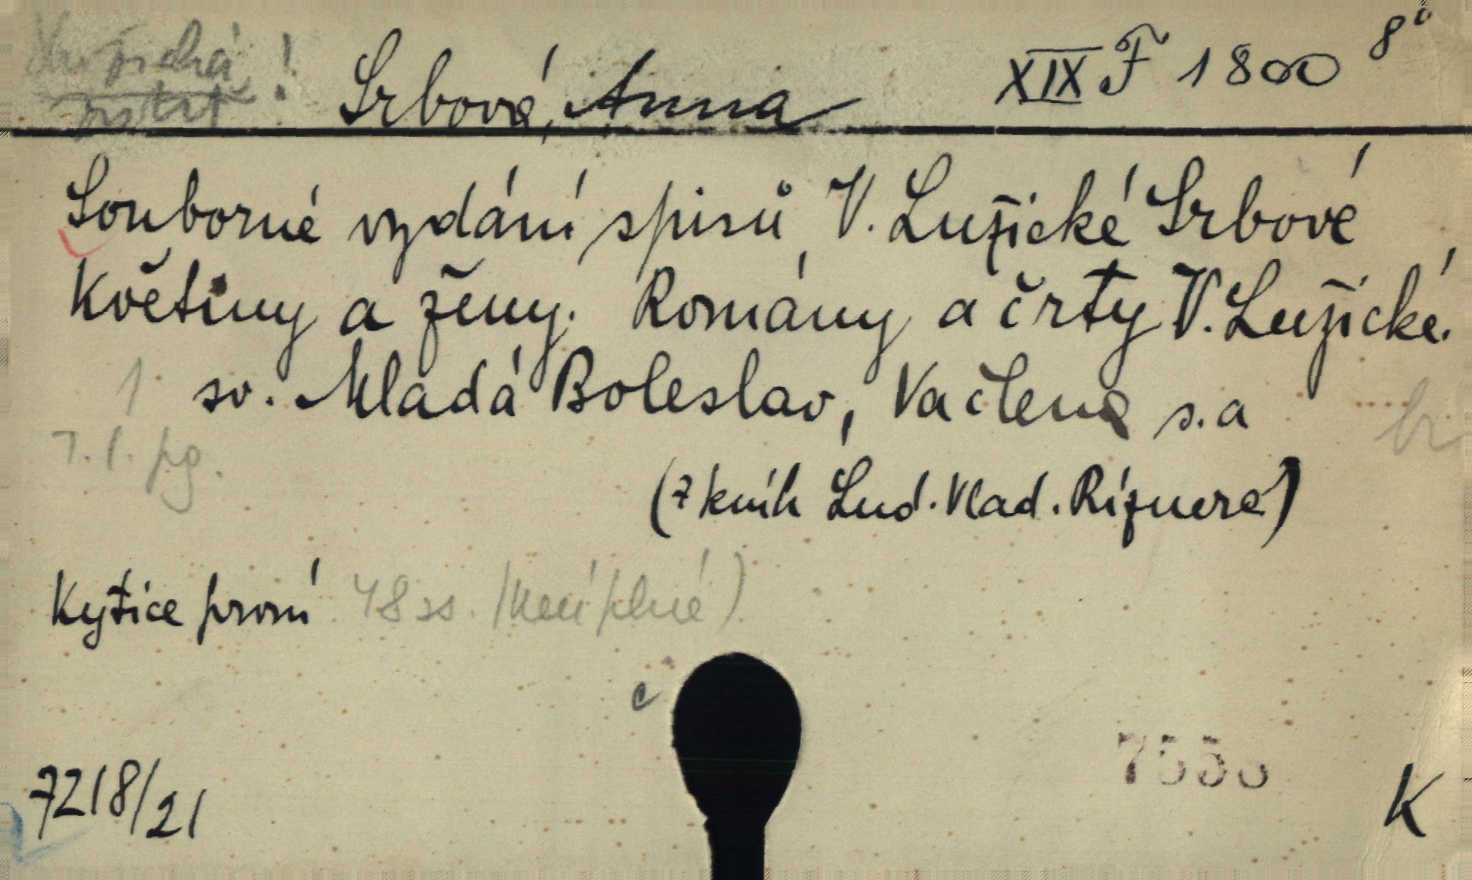 Srbová, Anna XIX F 1800 8°
Souborné vydání spisů V. Lužické Srbové
Květiny a ženy. Romány a črty V. Lužické.
1 sv. Mladá Boleslav, Vačlena s.a
7. l. pg.
(z kníh Lud. Vlad. Ríznera)
Kytice první 48 ss. (neúplné)
c
7218/21 K